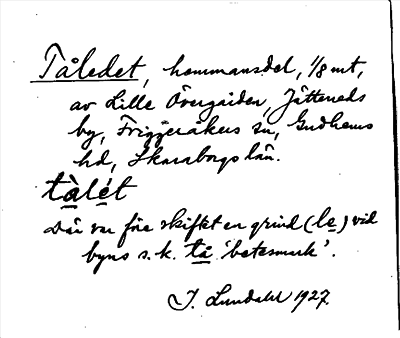 Tåledet, hemmansdel, 1/8 mt,
av Lille Övergården, Jätteneds
by, Friggeråkers sn, Gudhems
hd, Skaraborgs län.
tàlét
Där var före skiftet en grind (le) vid
byns s. k. tå 'betesmark'.
J. Lundahl 1927.